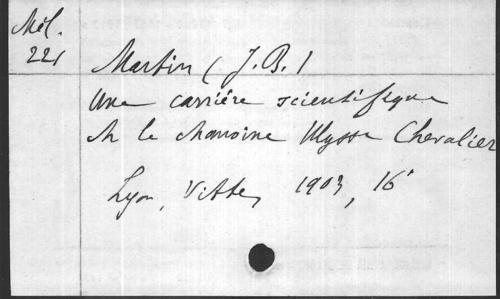 Mél.
221
Martin (J.B.)
Une carrière scientifique
M le chanoine Ulysse Chevalier
Lyon, Vitte, 1903, 16°